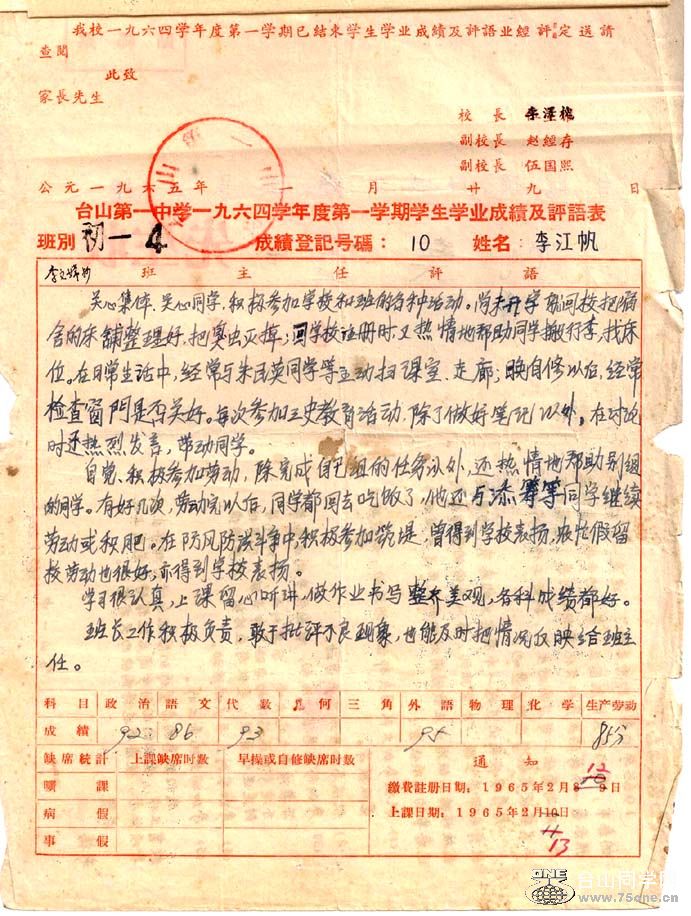 我校一九六四学年度第一学期已結束学生学业成績及評語业經評定送請
查閱
此致
家長先生
校長 李澤楷
副校長 赵經存
副校長 伍国熙
公元一九六五年 一 月 廿九 日
台山第一中学一九六四学年度第一学期学生学业成績及評語表
班別 初一4 成績登記号碼：10 姓名：李江帆
班主任評語
关心集体、关心同学，积极参加学校和班的各种活动。尚未开学就回校把宿
舍的床舖整理好，把臭虫灭掉；回学校注册时又热情地帮助同学搬行李，找床
位。在日常生活中，经常与朱民英同学等主动扫课室、走廊；晚自修以后，经常
检查窗門是否关好。每次参加三史教育活动，除了做好笔记以外，在讨论
时还热烈发言，带动同学。
自觉、积极参加劳动，除完成自己组的任务以外，还热情地帮助别组
的同学。有好几次，劳动完以后，同学都回去吃饭了，他还与添筹等同学继续
劳动或积肥。在防风防洪斗争中，积极参加筑堤，曾得到学校表扬，农忙假留
校劳动也很好，亦得到学校表扬。
学习很认真，上课留心听讲，做作业书写整齐美观，各科成绩都好。
班长工作积极负责，敢于批评不良现象，也能及时把情况反映给班主
任。
科目 政治 語文 代数 几何 三角 外語 物理 化学 生产劳动
成績 92 86 93 95 85分
缺席統計 上課缺席时数 早操或自修缺席时数 通知
曠課 繳費註册日期：1965年2月8—9日 12
病假 上課日期：1965年2月10日
事假 13
ONE 台山同学网
www.75one.cn